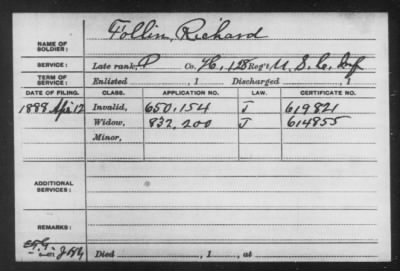 NAME OF SOLDIER: Follin, Richard
SERVICE: Late rank, P Co. H, 128 Reg't U. S. C. Inf
TERM OF SERVICE: Enlisted , 1 Discharged , 1
DATE OF FILING. CLASS. APPLICATION NO. LAW. CERTIFICATE NO.
1888 Apr 12 Invalid, 650.154 J 619821
Widow, 832.200 J 614855
Minor,
ADDITIONAL SERVICES:
REMARKS:
Died , 1 , at